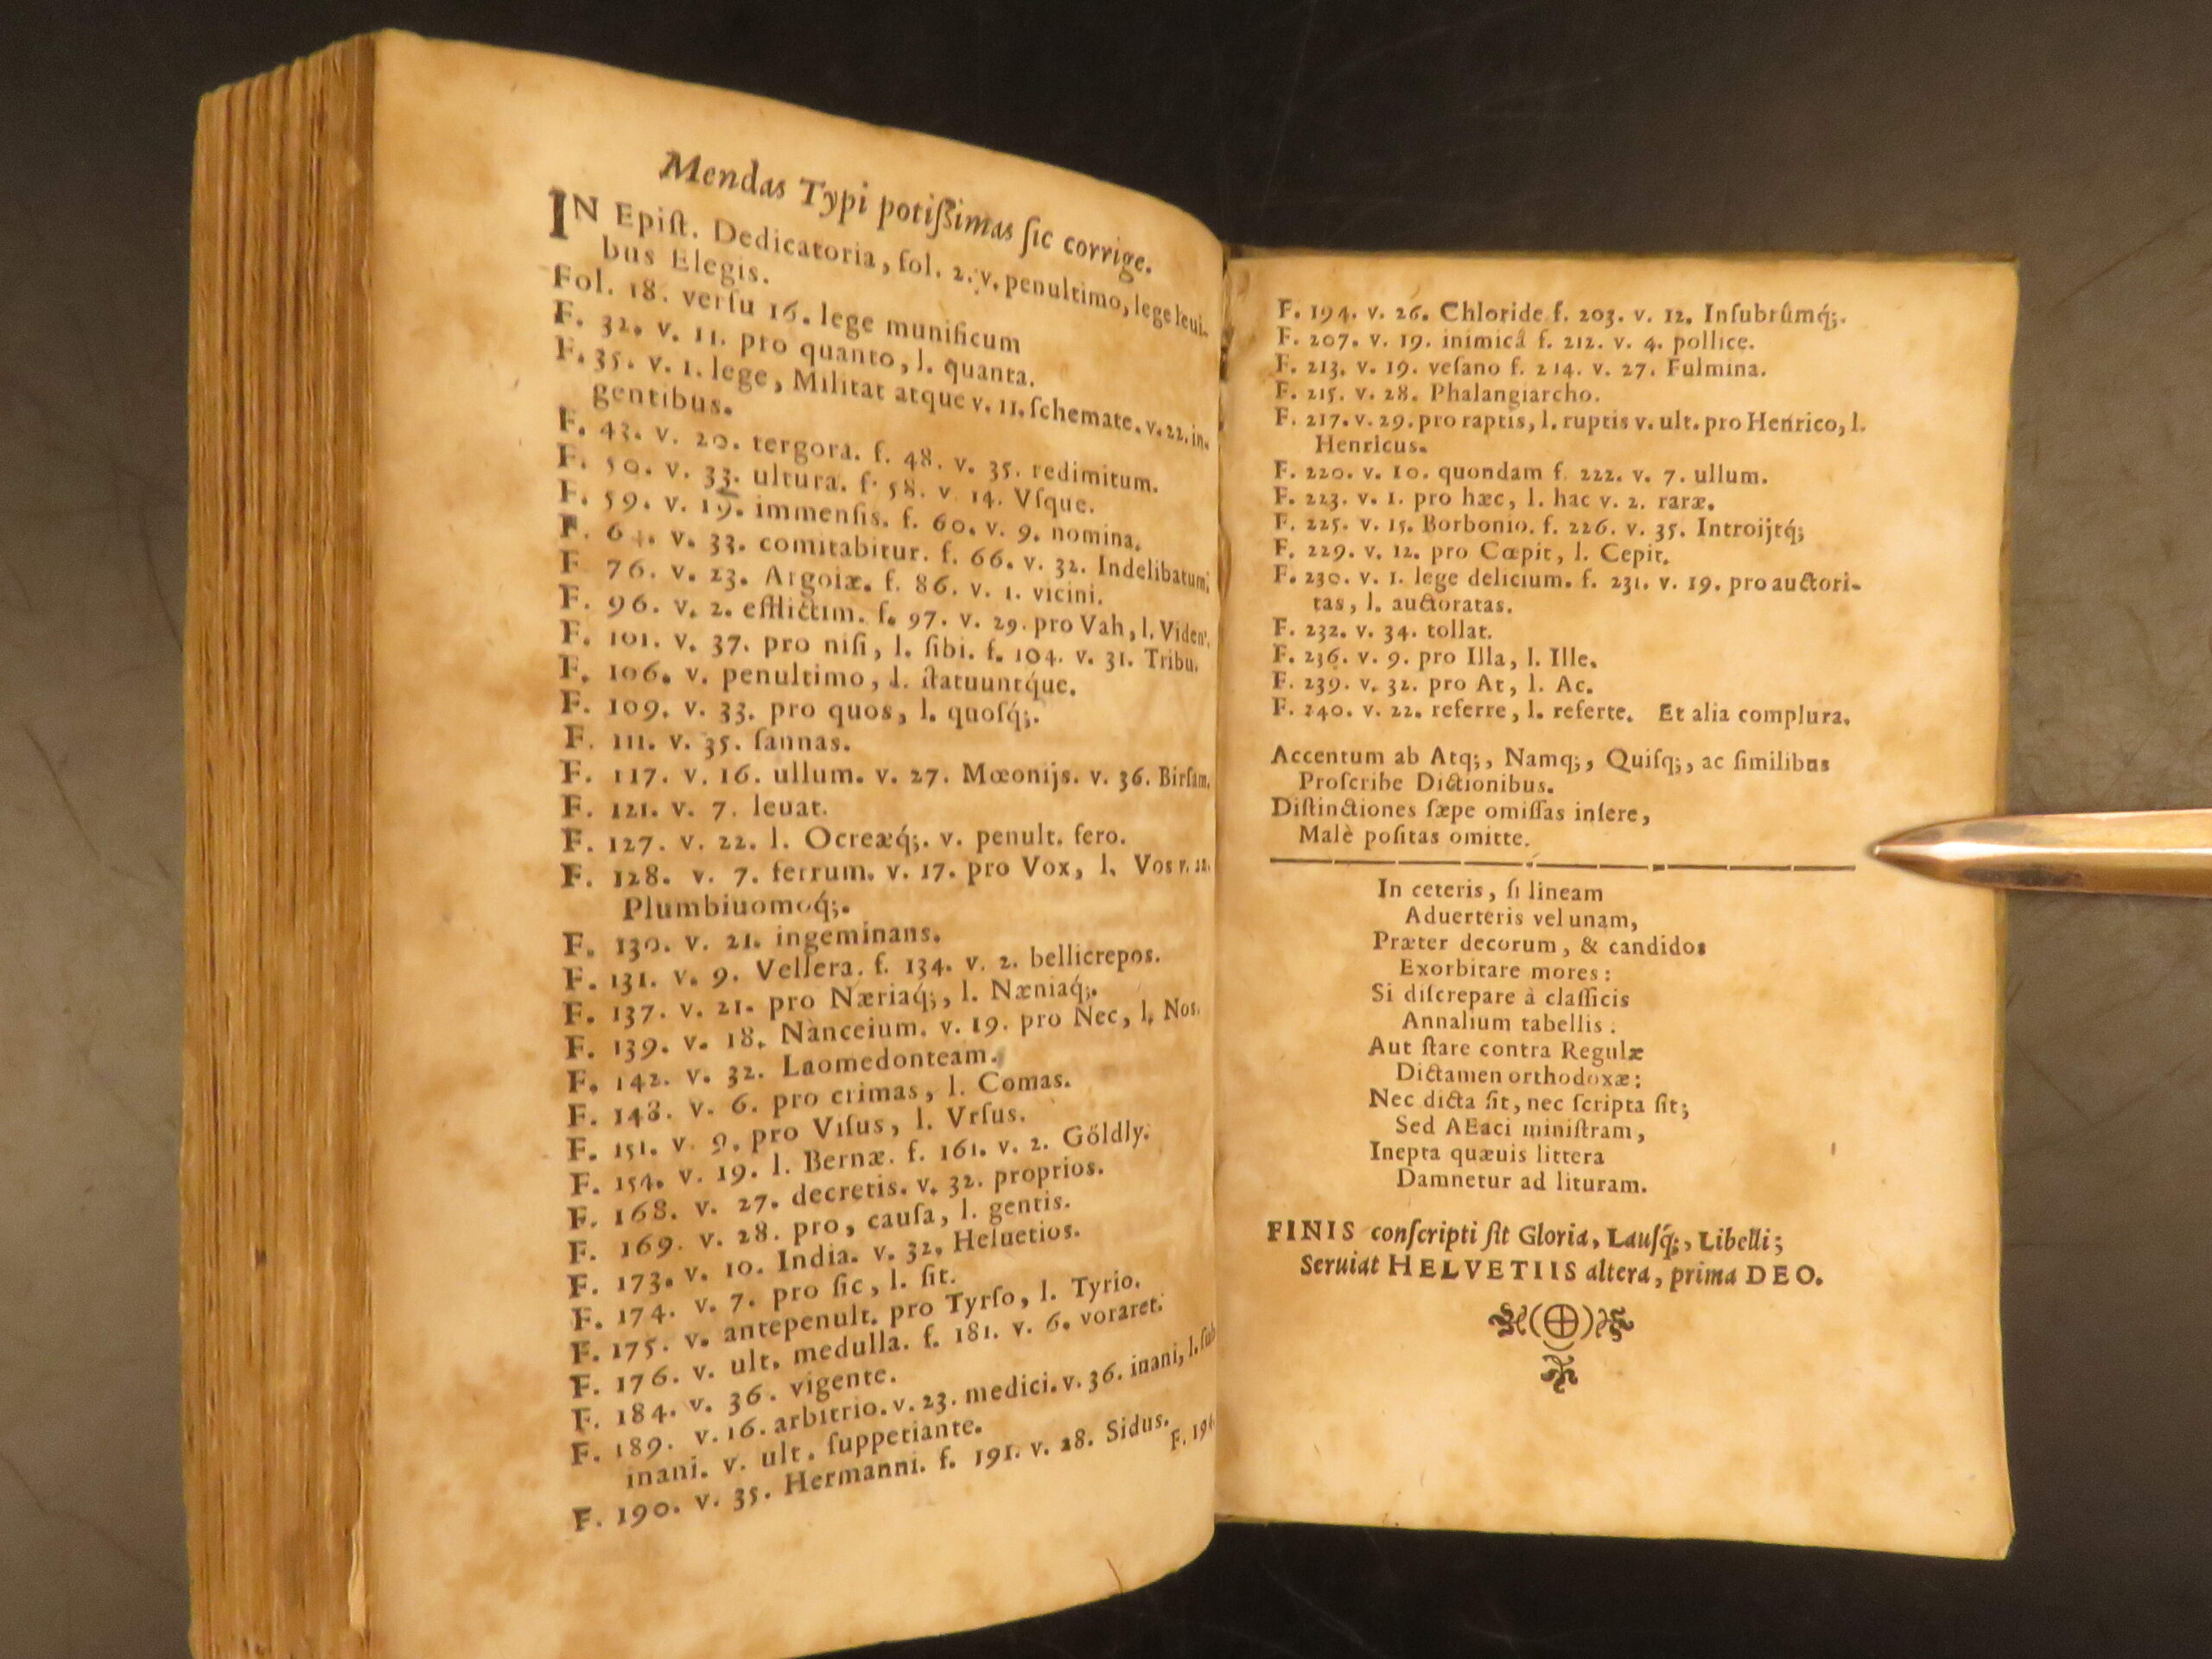 Mendas Typi potißimas ſic corrige.
IN Epiſt. Dedicatoria, fol. 2. v. penultimo, lege leui-
bus Elegis.
Fol. 18. verſu 16. lege munificum
F. 32. v. 11. pro quanto, l. quanta.
F. 35. v. 1. lege, Militat atque v. 11. ſchemate. v. 22. in-
gentibus.
F. 43. v. 20. tergora. f. 48. v. 35. redimitum.
F. 50. v. 33. ultura. f. 58. v. 14. Vſque.
F. 59. v. 19. immenſis. f. 60. v. 9. nomina.
F. 64. v. 33. comitabitur. f. 66. v. 32. Indelibatum;
F 76. v. 23. Argoiæ. f. 86. v. 1. vicini.
F. 96. v. 2. efflictim. f. 97. v. 29. pro Vah, l. Viden'.
F. 101. v. 37. pro niſi, l. ſibi. f. 104. v. 31. Tribu.
F. 106. v. penultimo, l. ſtatuuntq́ue.
F. 109. v. 33. pro quos, l. quoſq́;.
F. 111. v. 35. ſannas.
F. 117. v. 16. ullum. v. 27. Mœonijs. v. 36. Birſam.
F. 121. v. 7. leuat.
F. 127. v. 22. l. Ocreæq́;. v. penult. fero.
F. 128. v. 7. ferrum. v. 17. pro Vox, l. Vos v. 22.
Plumbiuomoq́;.
F. 130. v. 21. ingeminans.
F. 131. v. 9. Vellera. f. 134. v. 2. bellicrepos.
F. 137. v. 21. pro Næriaq́;, l. Næniaq́;.
F. 139. v. 18. Nànceium. v. 19. pro Nec, l. Nos.
F. 142. v. 32. Laomedonteam.
F. 148. v. 6. pro crimas, l. Comas.
F. 151. v. 9. pro Viſus, l. Vrſus.
F. 154. v. 19. l. Bernæ. f. 161. v. 2. Gőldly.
F. 168. v. 27. decretis. v. 32. proprios.
F. 169. v. 28. pro, cauſa, l. gentis.
F. 173. v. 10. India. v. 32. Heluetios.
F. 174. v. 7. pro ſic, l. ſit.
F. 175. v. antepenult. pro Tyrſo, l. Tyrio.
F. 176. v. ult. medulla. f. 181. v. 6. voraret.
F. 184. v. 36. vigente.
F. 189. v. 16. arbitrio. v. 23. medici. v. 36. inani, l. ſub
inani. v. ult. ſuppetiante.
F. 190. v. 35. Hermanni. f. 191. v. 28. Sidus.
F. 194
F. 194. v. 26. Chloride f. 203. v. 12. Inſubrûmq́;.
F. 207. v. 19. inimicâ f. 212. v. 4. pollice.
F. 213. v. 19. veſano f. 214. v. 27. Fulmina.
F. 215. v. 28. Phalangiarcho.
F. 217. v. 29. pro raptis, l. ruptis v. ult. pro Henrico, l.
Henricus.
F. 220. v. 10. quondam f. 222. v. 7. ullum.
F. 223. v. 1. pro hæc, l. hac v. 2. raræ.
F. 225. v. 15. Borbonio. f. 226. v. 35. Introijtq́;
F. 229. v. 12. pro Cœpit, l. Cepit.
F. 230. v. 1. lege delicium. f. 231. v. 19. pro auctori-
tas, l. auctoratas.
F. 232. v. 34. tollat.
F. 236. v. 9. pro Illa, l. Ille.
F. 239. v. 32. pro At, l. Ac.
F. 240. v. 22. referre, l. referte. Et alia complura.
Accentum ab Atq;, Namq;, Quiſq;, ac ſimilibus
Proſcribe Dictionibus.
Diſtinctiones ſæpe omiſſas inſere,
Malè poſitas omitte.
In ceteris, ſi lineam
Aduerteris vel unam,
Præter decorum, & candidos
Exorbitare mores:
Si diſcrepare à claſſicis
Annalium tabellis:
Aut ſtare contra Regulæ
Dictamen orthodoxæ:
Nec dicta ſit, nec ſcripta ſit;
Sed AEaci miniſtram,
Inepta quæuis littera
Damnetur ad lituram.
FINIS conſcripti ſit Gloria, Lauſq́;, Libelli;
Seruiat HELVETIIS altera, prima DEO.